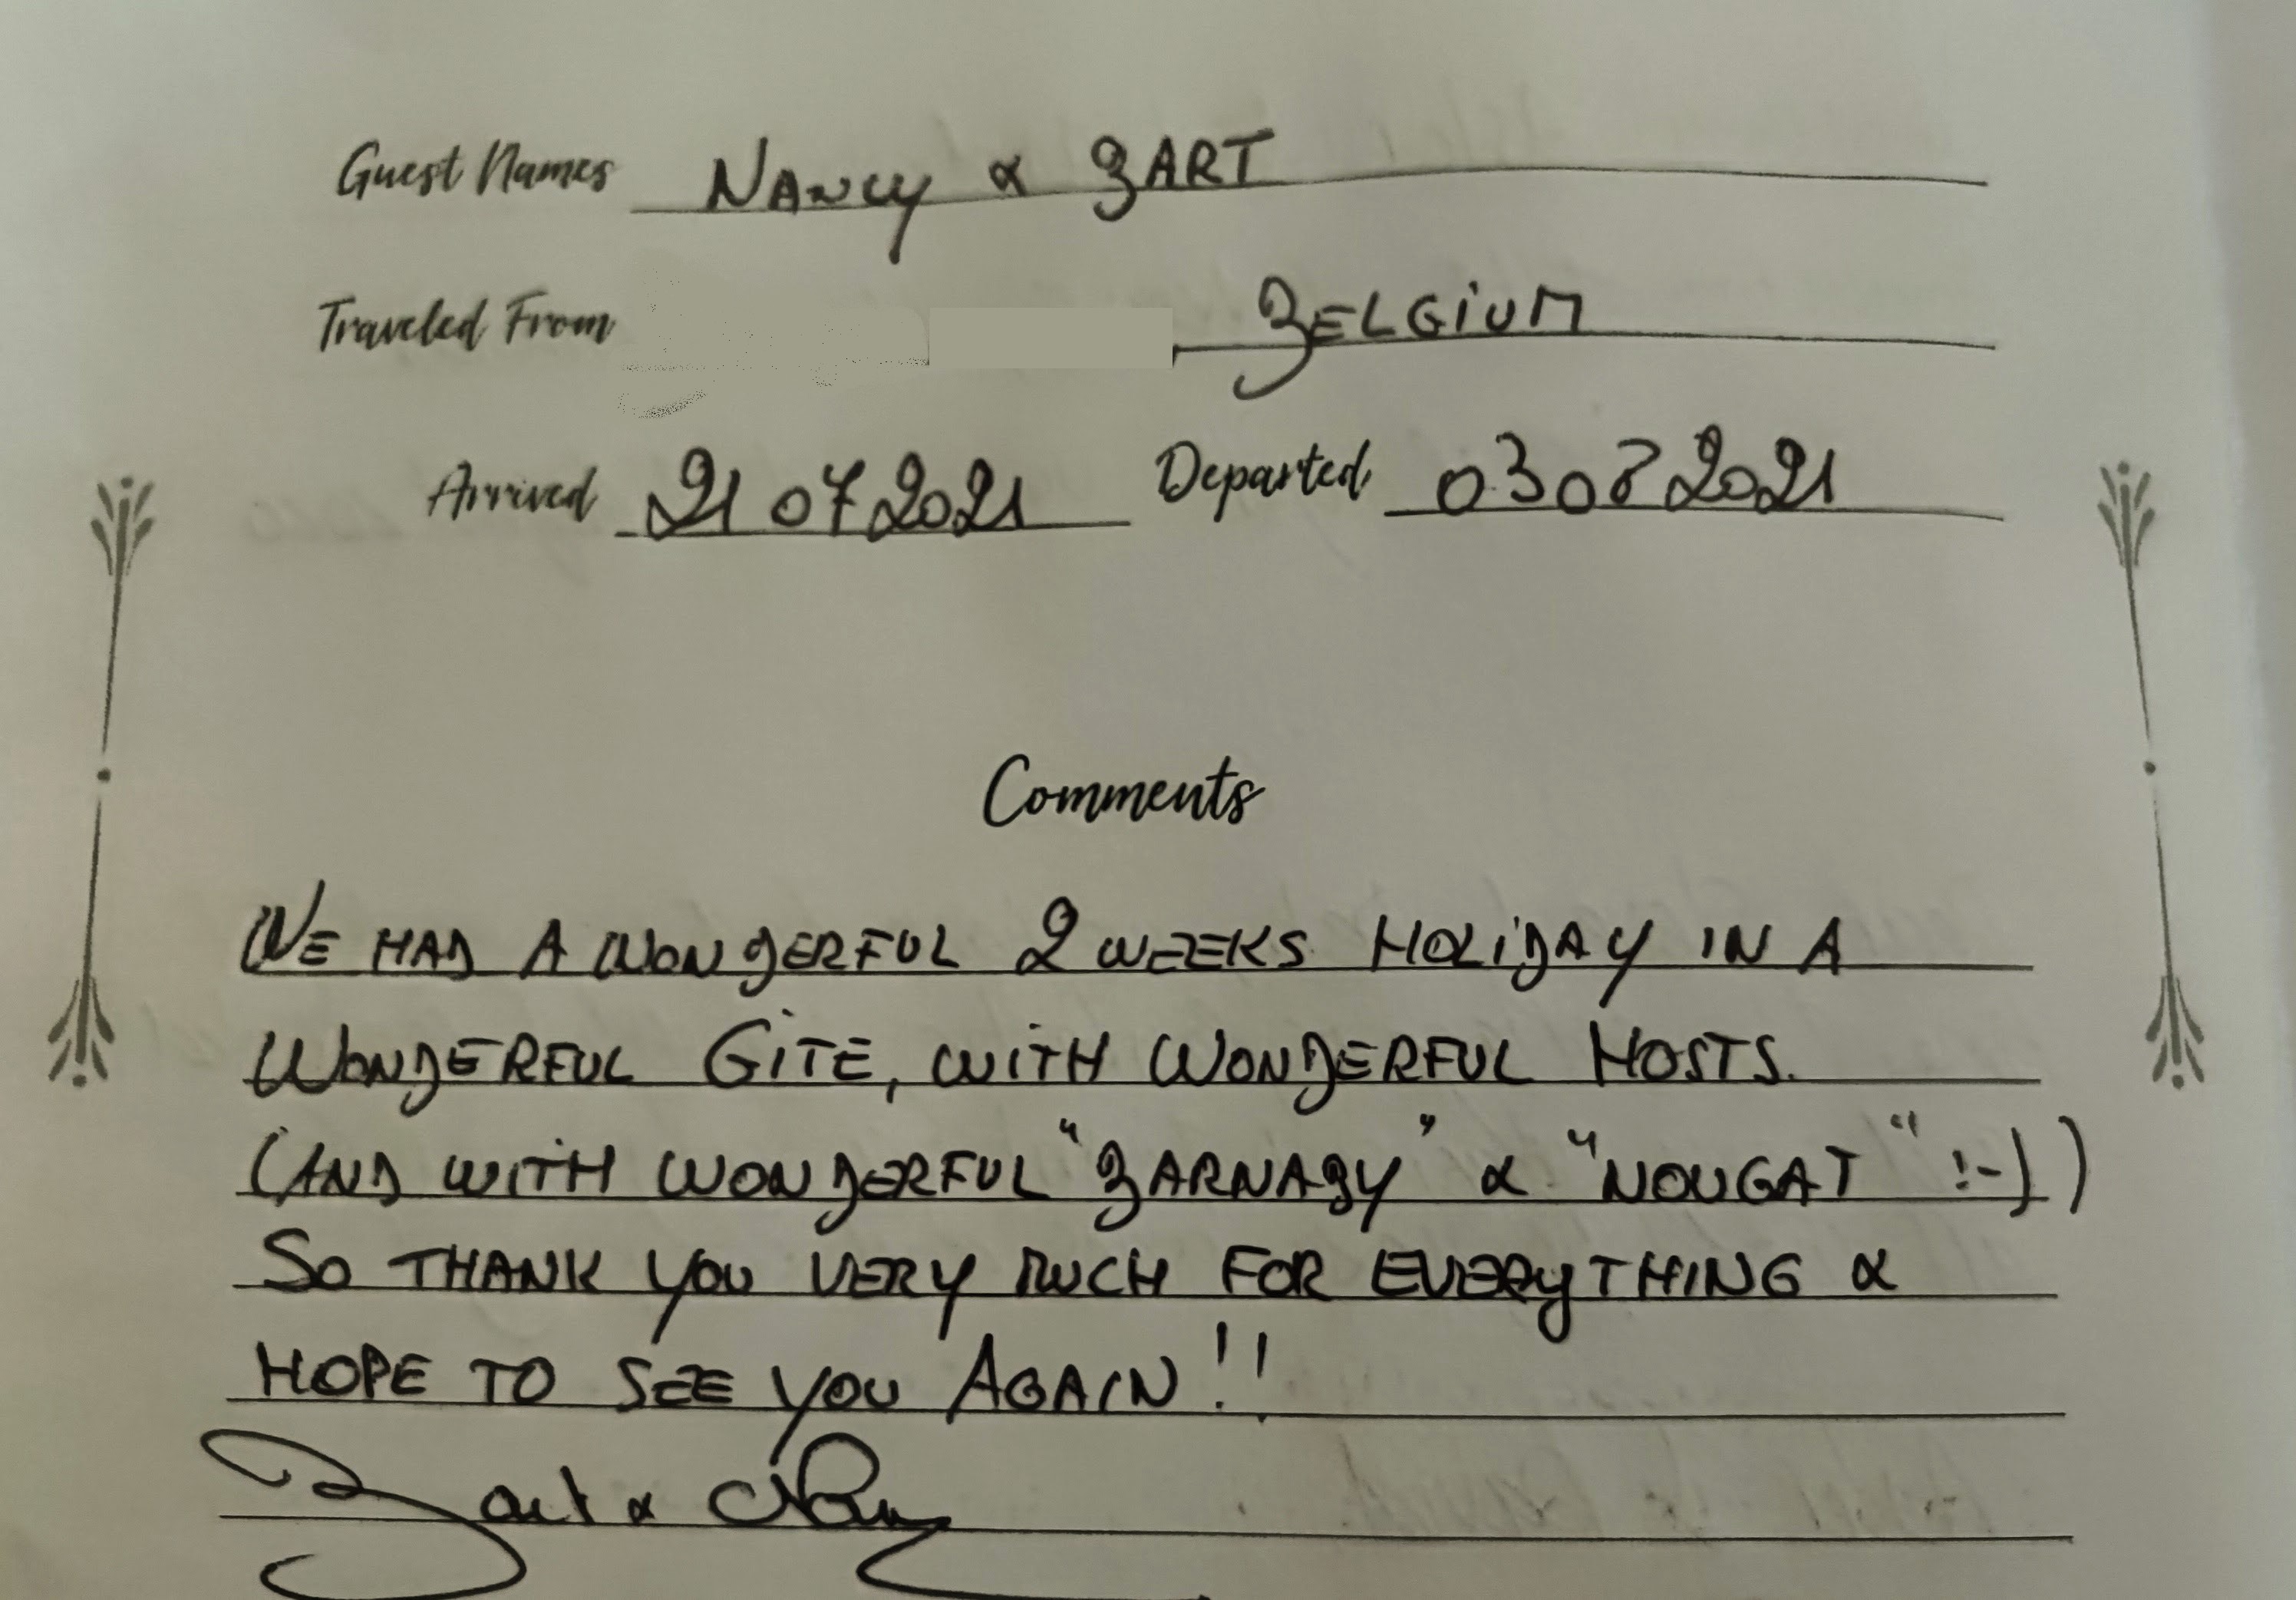 Guest Names NANCY & BART
Traveled From BELGIUM
Arrived 21 07 2021 Departed 03 08 2021
Comments
WE HAD A WONDERFUL 2 WEEKS HOLIDAY IN A
WONDERFUL GITE, WITH WONDERFUL HOSTS.
(AND WITH WONDERFUL "BARNABY" & "NOUGAT" !-))
SO THANK YOU VERY MUCH FOR EVERYTHING &
HOPE TO SEE YOU AGAIN!!
Bart & Nancy